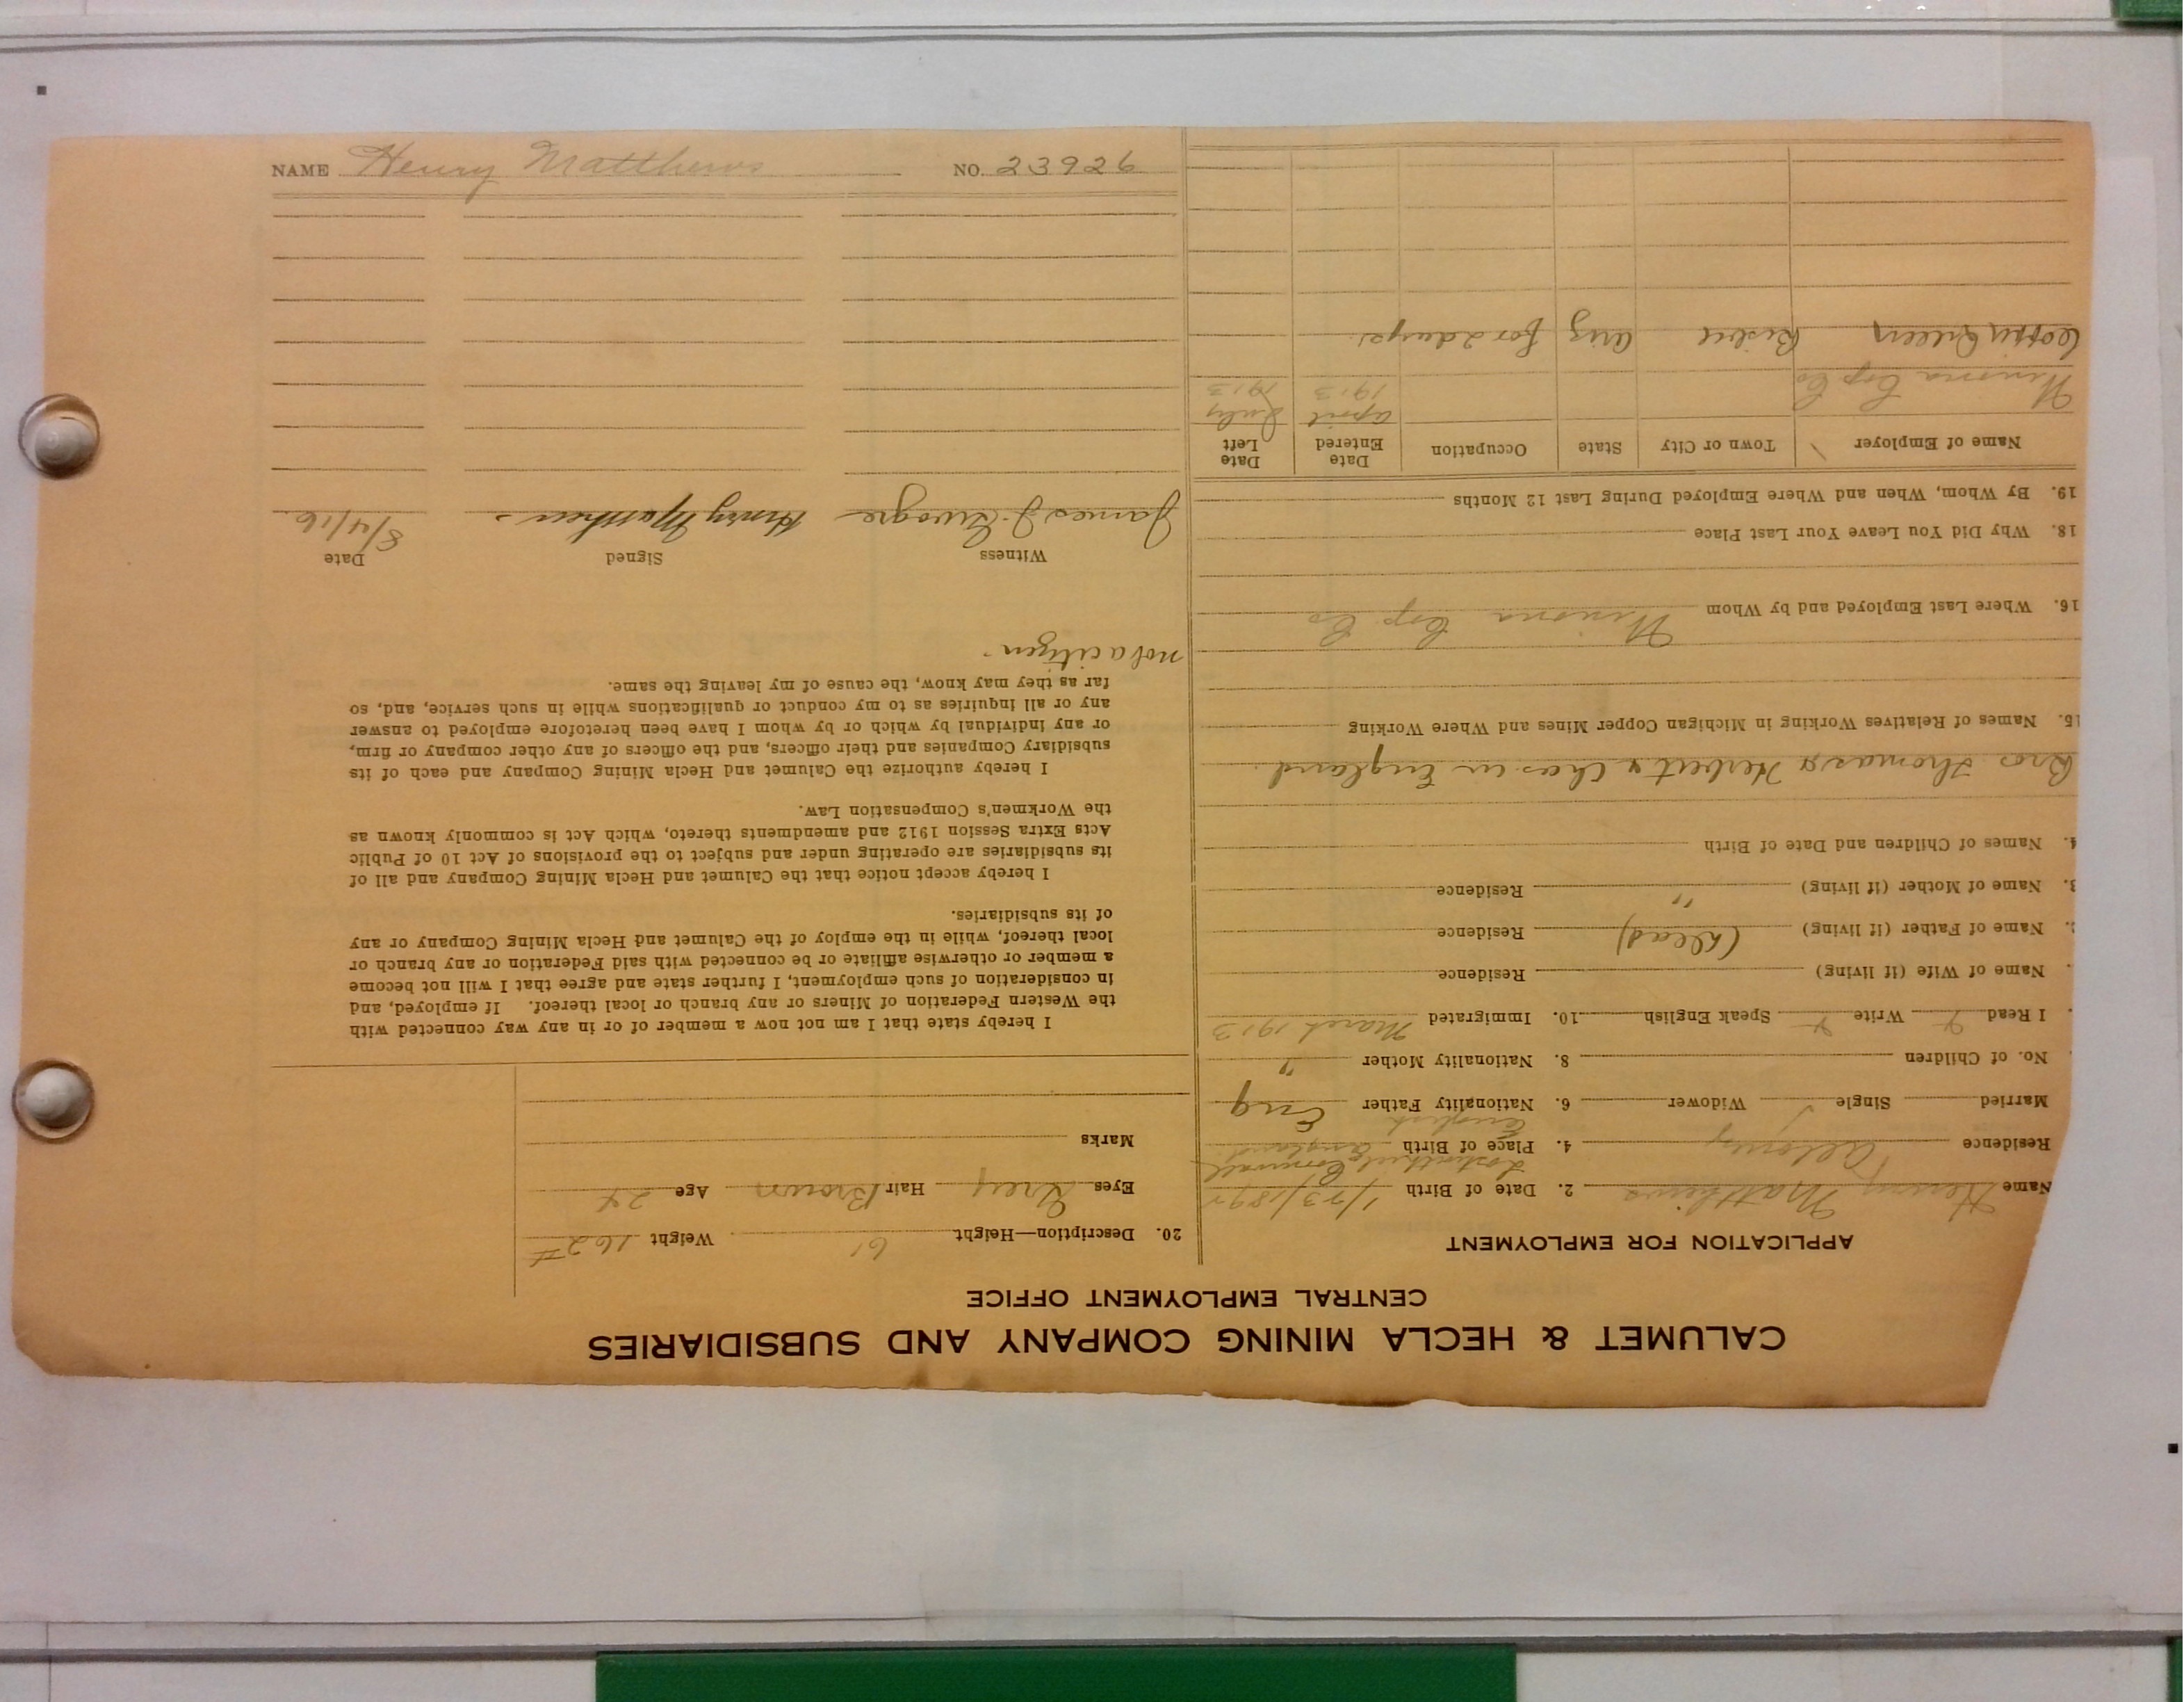 CALUMET & HECLA MINING COMPANY AND SUBSIDIARIES
CENTRAL EMPLOYMENT OFFICE
APPLICATION FOR EMPLOYMENT
Name Henry Matthews 2. Date of Birth 1/23/1892
Residence 4. Place of Birth Lostwithiel Cornwall England
Married Single ✓ Widower 6. Nationality Father Eng
English
No. of Children 8. Nationality Mother "
I Read Y Write Y Speak English 10. Immigrated March 1913
Name of Wife (if living) Residence
Name of Father (if living) (Dead) Residence
3. Name of Mother (if living) " Residence
4. Names of Children and Date of Birth
Bros Thomas & Herbert & Chas in England.
15. Names of Relatives Working in Michigan Copper Mines and Where Working
16. Where Last Employed and by Whom Winona Cop Co
18. Why Did You Leave Your Last Place
19. By Whom, When and Where Employed During Last 12 Months
Name of Employer Town or City State Occupation Date Entered Date Left
Winona Cop Co April 1913 July 1913
Copper Queen Bisbee Ariz for 2 days.
20. Description—Height 6' Weight 162#
Eyes Grey Hair Brown Age 24
Marks
I hereby state that I am not now a member of or in any way connected with
the Western Federation of Miners or any branch or local thereof. If employed, and
in consideration of such employment, I further state and agree that I will not become
a member or otherwise affiliate or be connected with said Federation or any branch or
local thereof, while in the employ of the Calumet and Hecla Mining Company or any
of its subsidiaries.
I hereby accept notice that the Calumet and Hecla Mining Company and all of
its subsidiaries are operating under and subject to the provisions of Act 10 of Public
Acts Extra Session 1912 and amendments thereto, which Act is commonly known as
the Workmen's Compensation Law.
I hereby authorize the Calumet and Hecla Mining Company and each of its
subsidiary Companies and their officers, and the officers of any other company or firm,
or any individual by which or by whom I have been heretofore employed to answer
any or all inquiries as to my conduct or qualifications while in such service, and, so
far as they may know, the cause of my leaving the same.
not a citizen.
Witness Signed Date
James J. Henry Matthews 8/4/16
NAME Henry Matthews NO. 23926